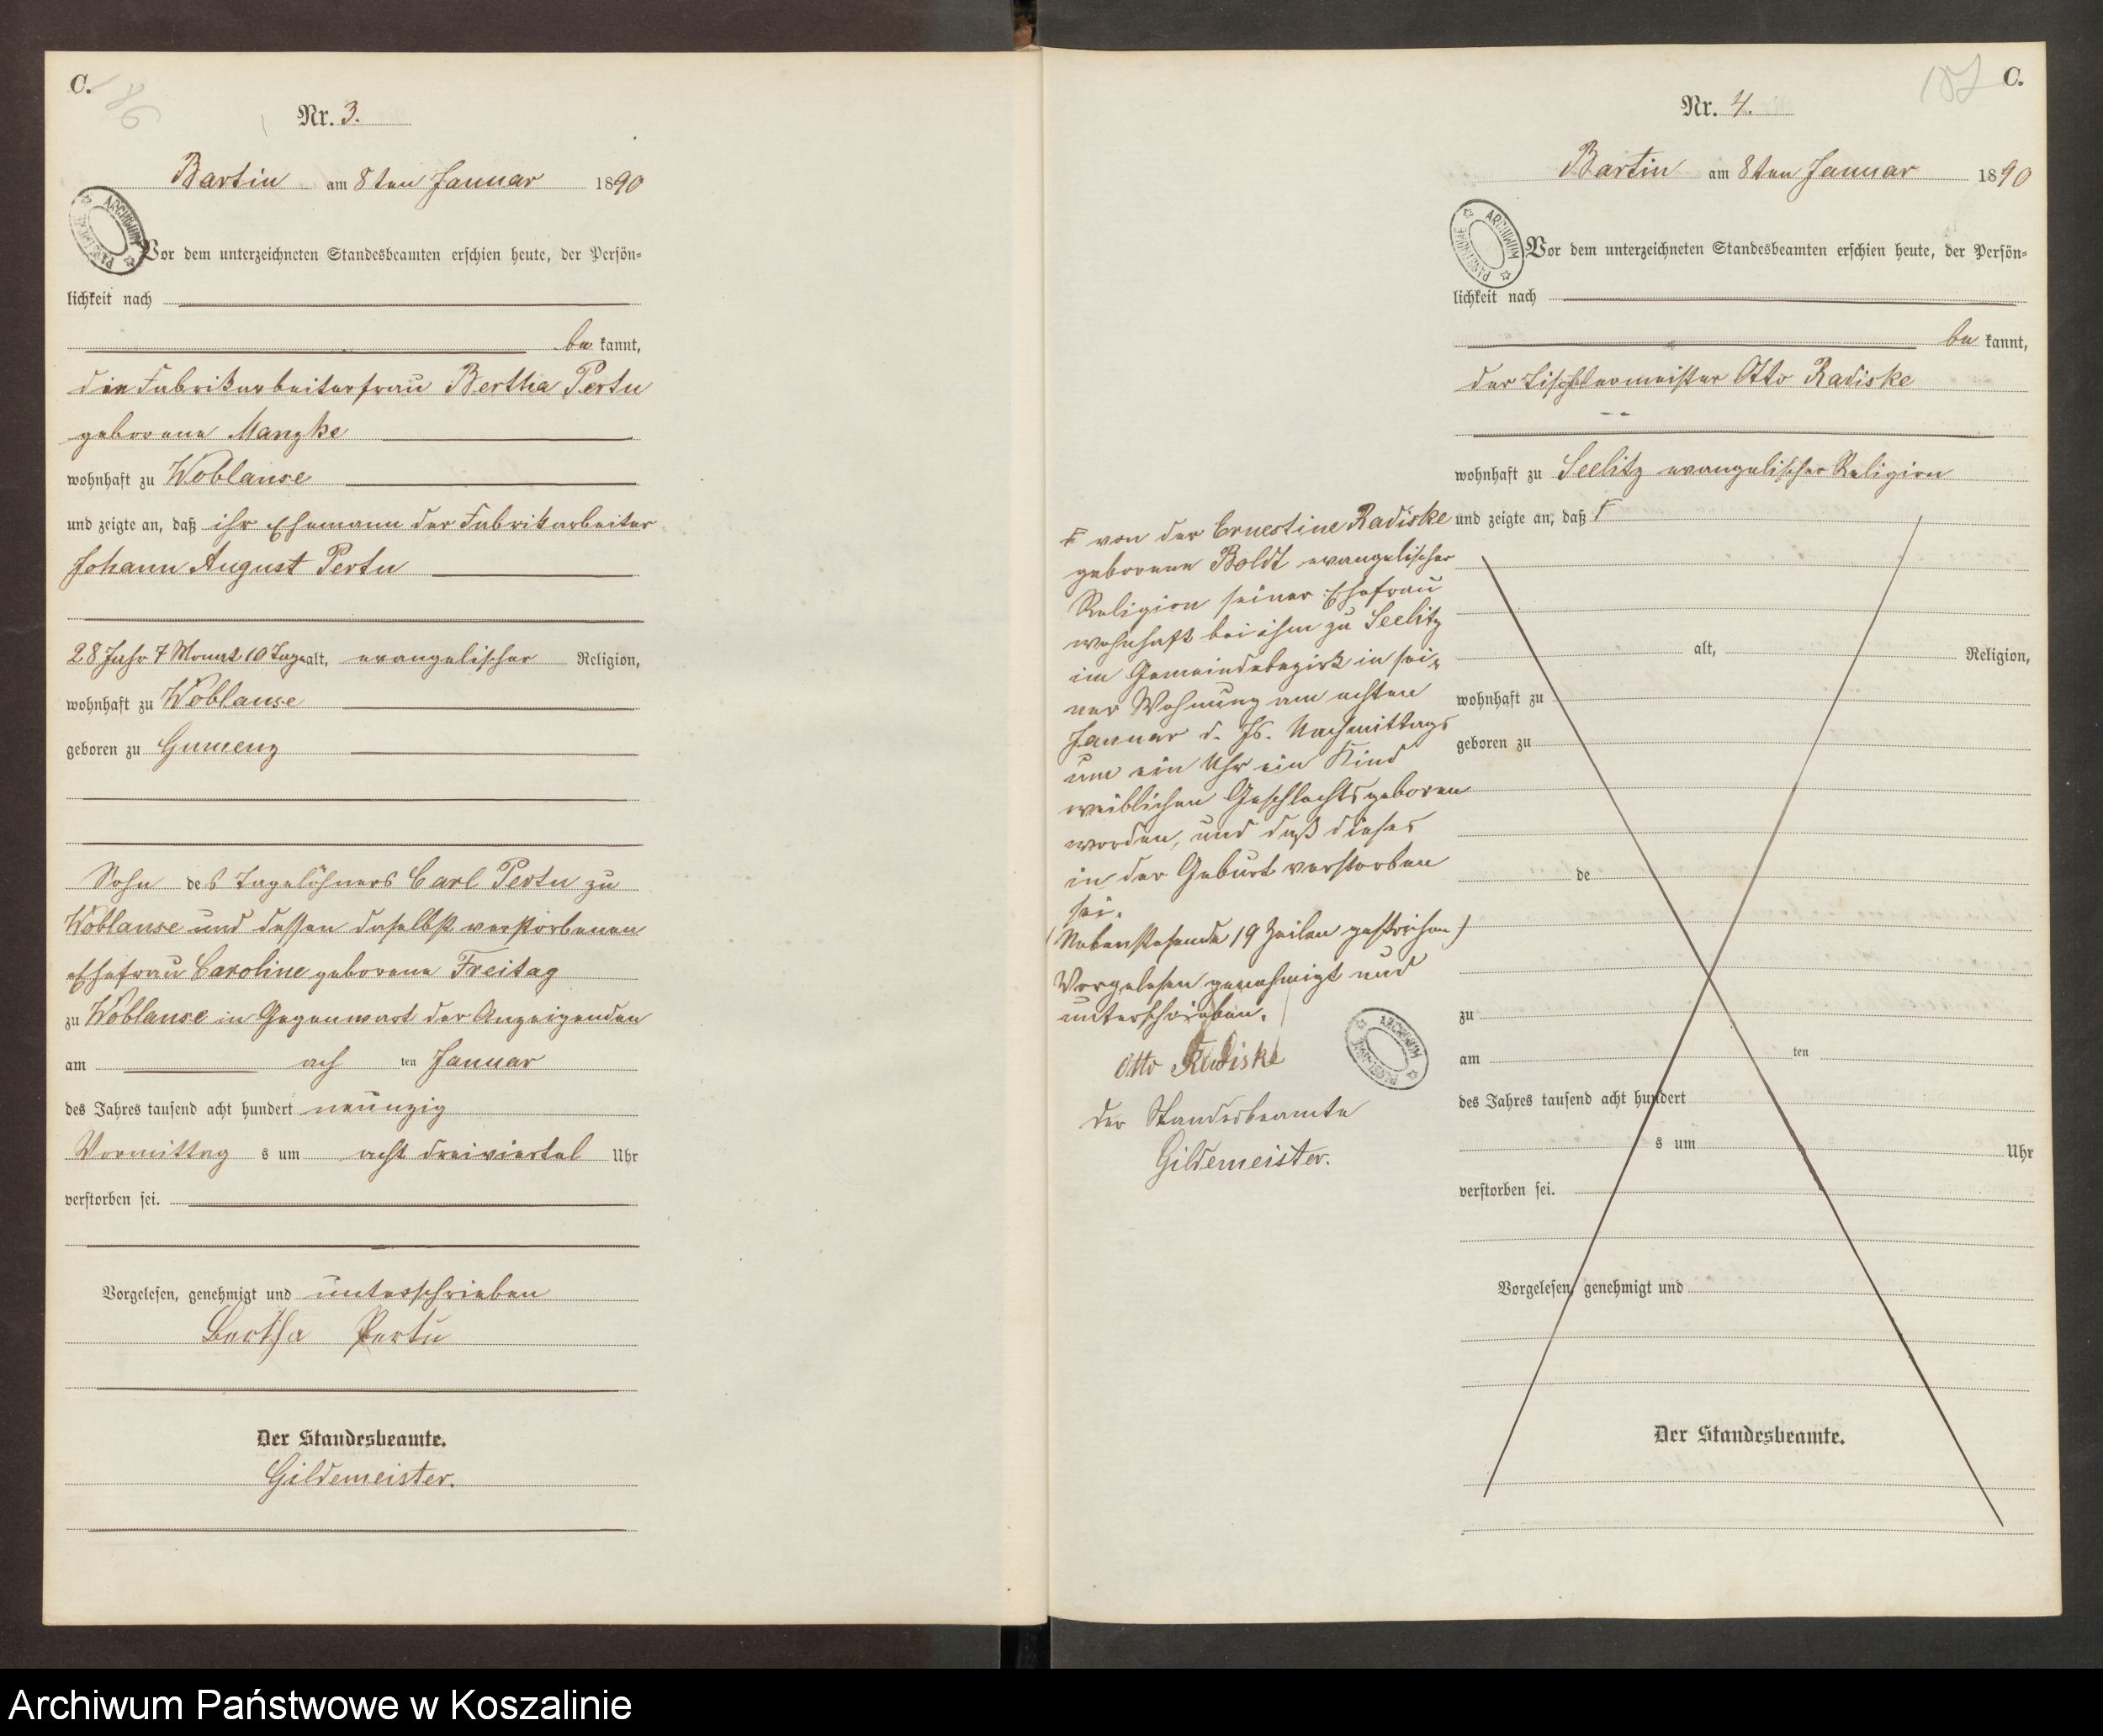 C.
Nr. 3.
Bartin am 8ten Januar 1890
Vor dem unterzeichneten Standesbeamten erschien heute, der Persön-
lichkeit nach
be kannt,
die Fabrikarbeiterfrau Bertha Pertu
geborene Manzke
wohnhaft zu Woblanse
und zeigte an, daß ihr Ehemann der Fabrikarbeiter
Johann August Pertu
28 Jahr 7 Monat 10 Tage alt, evangelischer Religion,
wohnhaft zu Woblanse
geboren zu Gumenz
Sohn des Tagelöhners Carl Pertu zu
Woblanse und dessen daselbst verstorbenen
Ehefrau Caroline geborene Freitag
zu Woblanse in Gegenwart der Anzeigenden
am ach ten Januar
des Jahres tausend acht hundert neunzig
Vormittag s um acht dreiviertel Uhr
verstorben sei.
Vorgelesen, genehmigt und unterschrieben
Bertha Pertu
Der Standesbeamte.
Gildemeister.
C.
Nr. 4.
Bartin am 8ten Januar 1890
Vor dem unterzeichneten Standesbeamten erschien heute, der Persön-
lichkeit nach
be kannt,
der Tischlermeister Otto Radiske
wohnhaft zu Seelitz evangelischer Religion
und zeigte an, daß F
F von der Ernestine Radiske
geborene Boldt evangelischer
Religion seiner Ehefrau
wohnhaft bei ihm zu Seelitz
im Gemeindebezirk in sei-
ner Wohnung am achten
Januar d. Js. Nachmittags
um ein Uhr ein Kind
weiblichen Geschlechts geboren
worden, und daß dieses
in der Geburt verstorben
sei.
(Nebenstehende 19 Zeilen gestrichen)
Vorgelesen genehmigt und
unterschrieben.
Otto Radiske
der Standesbeamte
Gildemeister.
alt, Religion,
wohnhaft zu
geboren zu
de
zu
am ten
des Jahres tausend acht hundert
s um Uhr
verstorben sei.
Vorgelesen, genehmigt und
Der Standesbeamte.
Archiwum Państwowe w Koszalinie